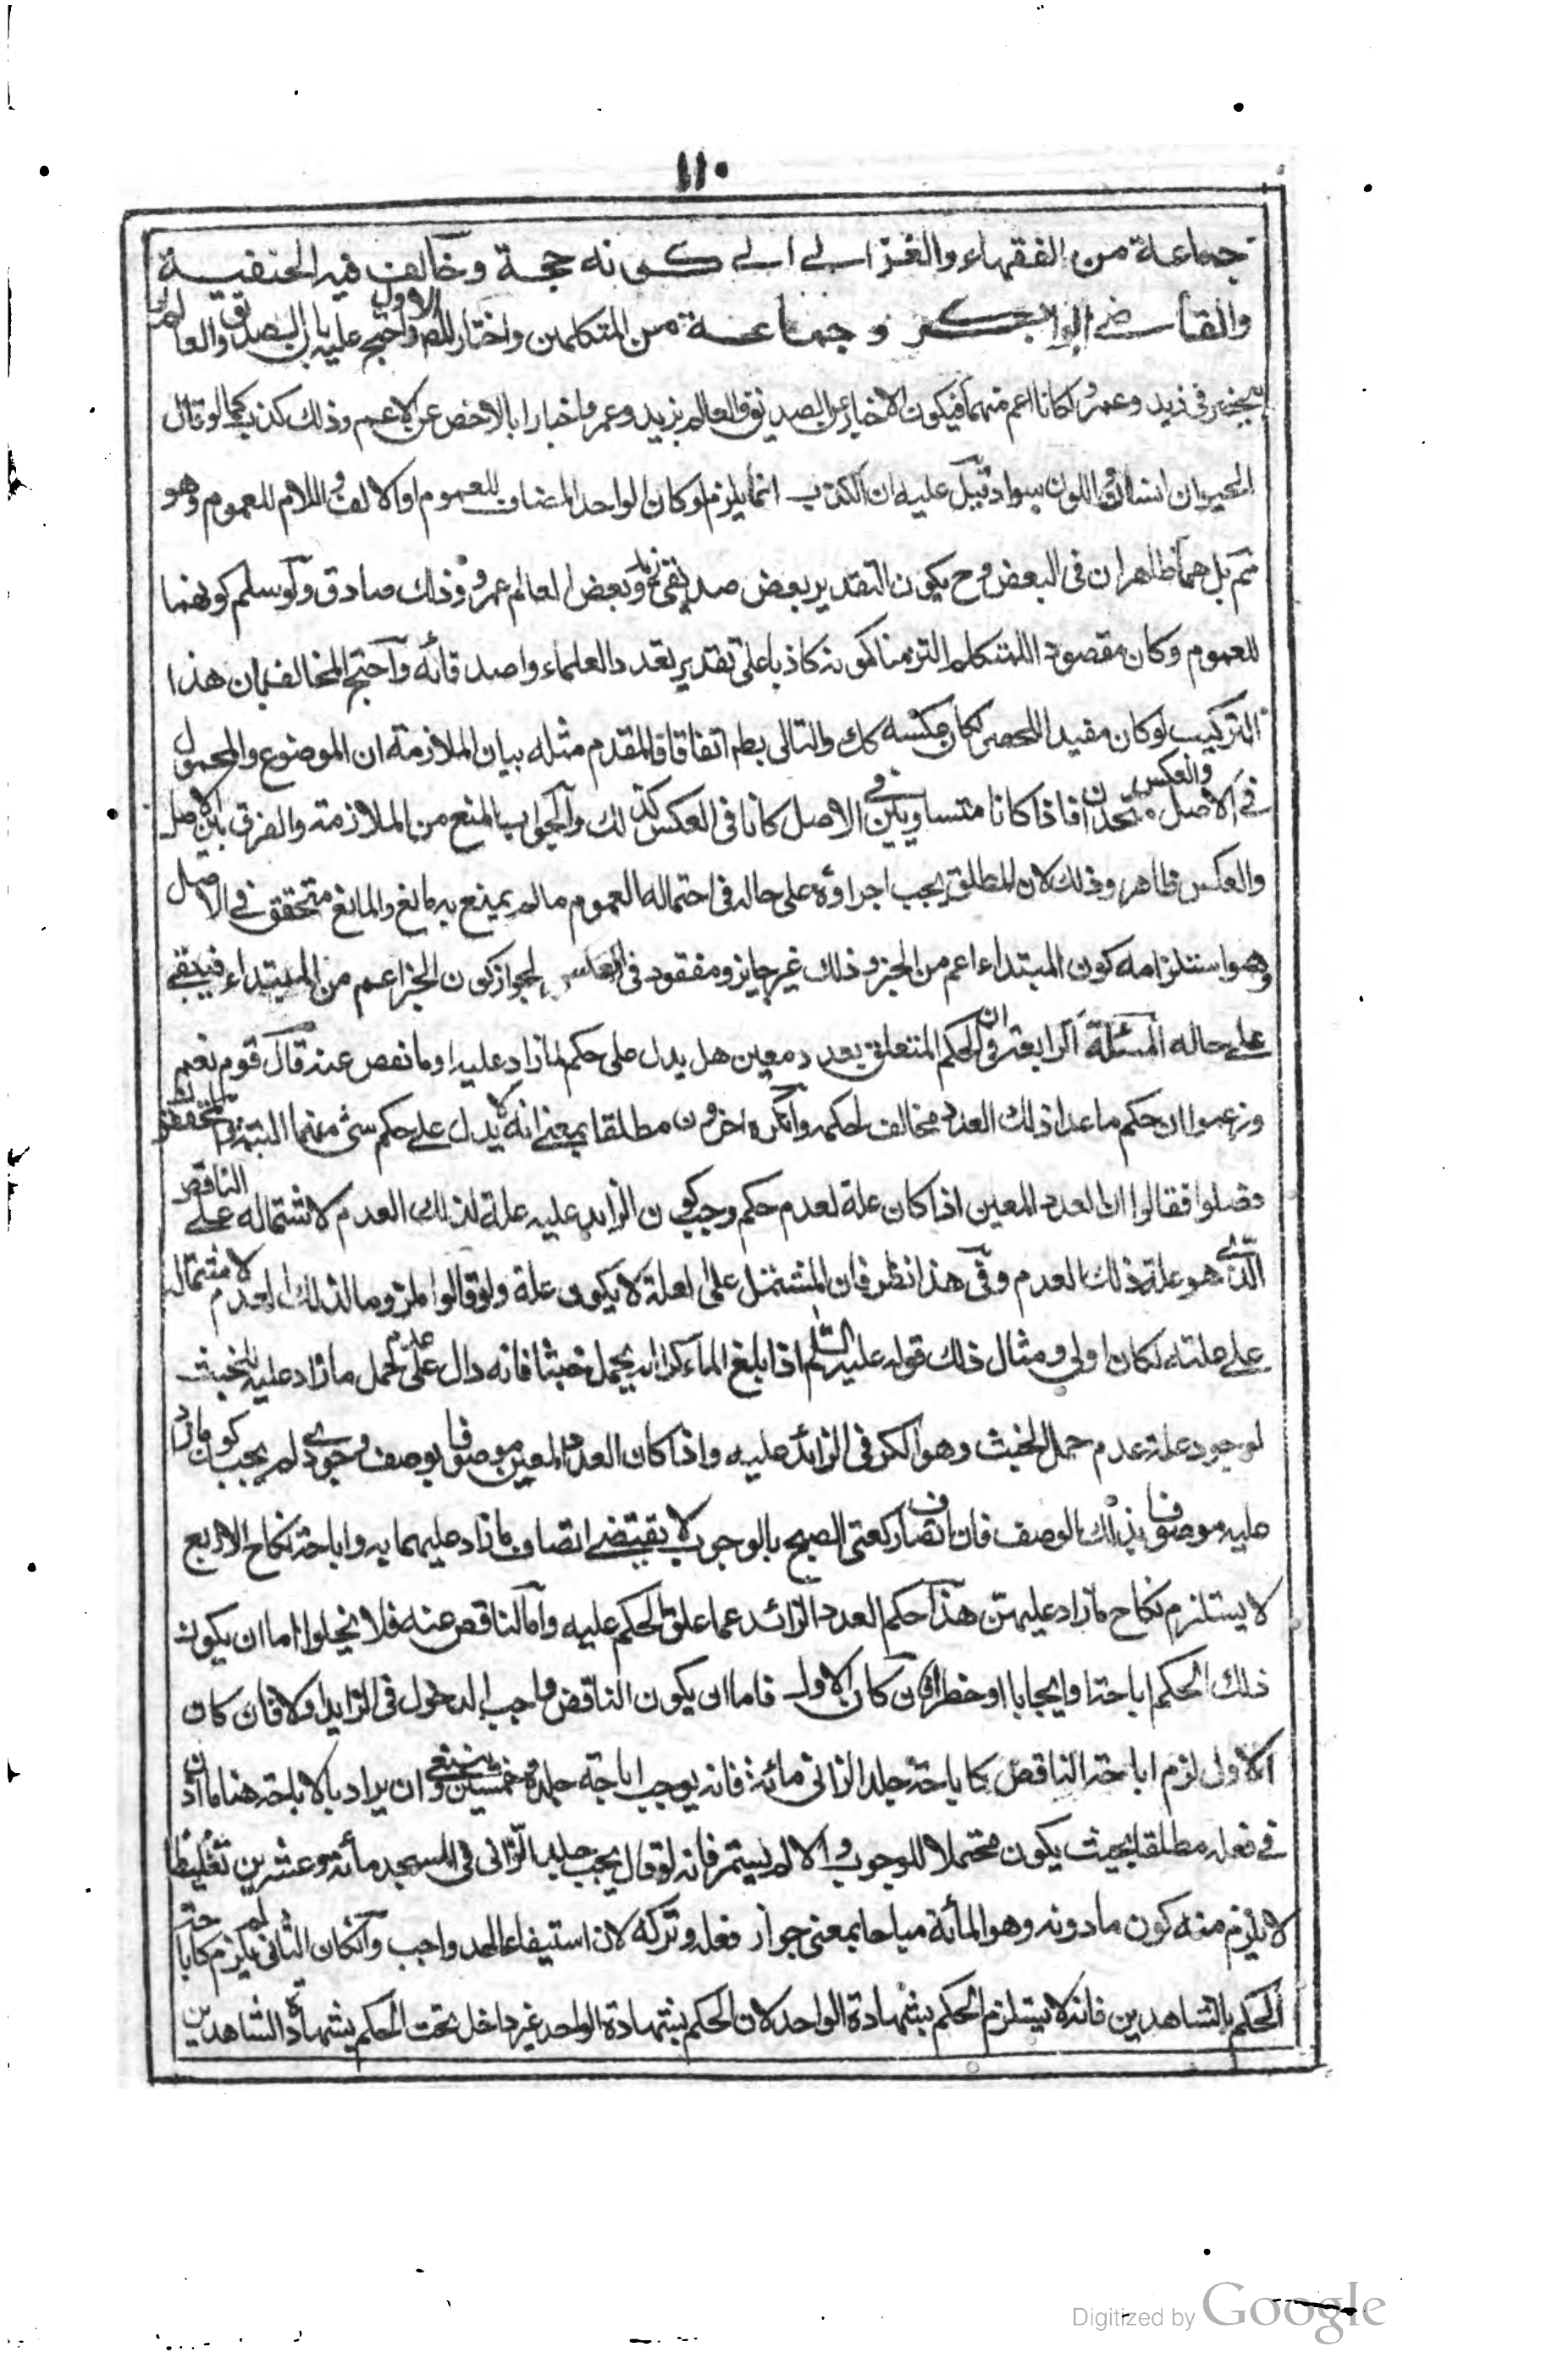 ١١٠
جماعة من الفقهاء والغزالي الى كونه حجة وخالف فيه الحنفية
والقاضي ابو بكر وجماعة من المتكلمين واختار المص الاول واحتج عليه بان الصديق والعالم لو لم
ينحصر في زيد وعمرو لكانا اعم منهما فيكون الاخبار عن الصديق والعالم بزيد وعمرو اخبارا بالاخص عن الاعم وذلك كذب كما لو قال
الحيوان انسان واللون سواد قيل عليه ان الكذب انما يلزم لو كان الواحد المضاف للعموم او كالالف واللام للعموم وهو
تم بل هما ظاهران في البعض وح يكون التقدير بعض صديقي زيد وبعض العالم عمرو وذلك صادق ولو سلم كونهما
للعموم وكان مقصود المتكلم التزمنا كونه كاذبا على تقدير تعدد العلماء واصدقائه واحتج المخالف بان هذا
التركيب لو كان مفيدا للحصر لكان عكسه كك والتالي بط اتفاقا فالمقدم مثله بيان الملازمة ان الموضوع والمحمول
في الاصل والعكس متحدان فاذا كانا متساويين في الاصل كانا في العكس كذلك والجواب بالمنع من الملازمة والفرق بين الاصل
والعكس ظاهر وذلك لان المطلق يجب اجراؤه على حاله في احتماله العموم مالم يمنع به مانع والمانع متحقق في الاصل
وهو استلزامه كون المبتداء اعم من الخبر وذلك غير جايز ومفقود في العكس لجواز كون الخبر اعم من المبتداء فيبقى
على حاله المسئلة الرابعة في ان الحكم المتعلق بعدد معين هل يدل على حكم ما زاد عليه او ما نقص عنه قال قوم نعم
وزعموا ان حكم ما عدا ذلك العدد مخالف لحكمه وانكره اخرون مطلقا بمعنى انه لا يدل على حكم شئ منهما البتة والمحققون
فصلوا فقالوا ان العدد المعين اذا كان علة لعدم حكم وجب كون الزايد عليه علة لذلك العدم لاشتماله على الناقص
الذي هو علة ذلك العدم وفي هذا نظر فان المشتمل على العلة لا يكون علة ولو قالوا ملزوما لذلك العدم لاشتماله
على علته لكان اولى ومثال ذلك قوله عليه السلم اذا بلغ الماء كرا لم يحمل خبثا فانه دال على عدم حمل ما زاد عليه للخبث
لوجود علة عدم حمل الخبث وهو الكر في الزائد عليه واذا كان العدد المعين موصوفا بوصف وجودي لم يجب كون ما زاد
عليه موصوفا بذلك الوصف فان اتصاف ركعتى الصبح بالوجوب لا يقتضي اتصاف ما زاد عليهما به واباحة نكاح الاربع
لا يستلزم نكاح ما زاد عليهن هذا حكم العدد الزائد عما علق الحكم عليه واما الناقص عنه فلا يخلوا اما ان يكون
ذلك الحكم اباحة او ايجابا او حظرا فان كان الاول فاما ان يكون الناقص واجب الدخول في الزايد او لا فان كان
الاول لزم اباحة الناقص كاباحة جلد الزاني مائة فانه يوجب اباحة جلده خمسين وينبغي ان يراد بالاباحة هنا ما اذن
في فعله مطلقا بحيث يكون محتملا للوجوب والا لم يستمر فانه لو قال يجب جلد الزاني في المسجد مائة وعشرين تغليظا
لا يلزم منه كون ما دونه وهو المائة مباحا بمعنى جواز فعله وتركه لان استيفاء الحد واجب وان كان الثاني لم يلزم كاباحة
الحكم بالشاهدين فانه لا يستلزم الحكم بشهادة الواحد لان الحكم بشهادة الواحد غير داخل تحت الحكم بشهادة الشاهدين
Digitized by Google